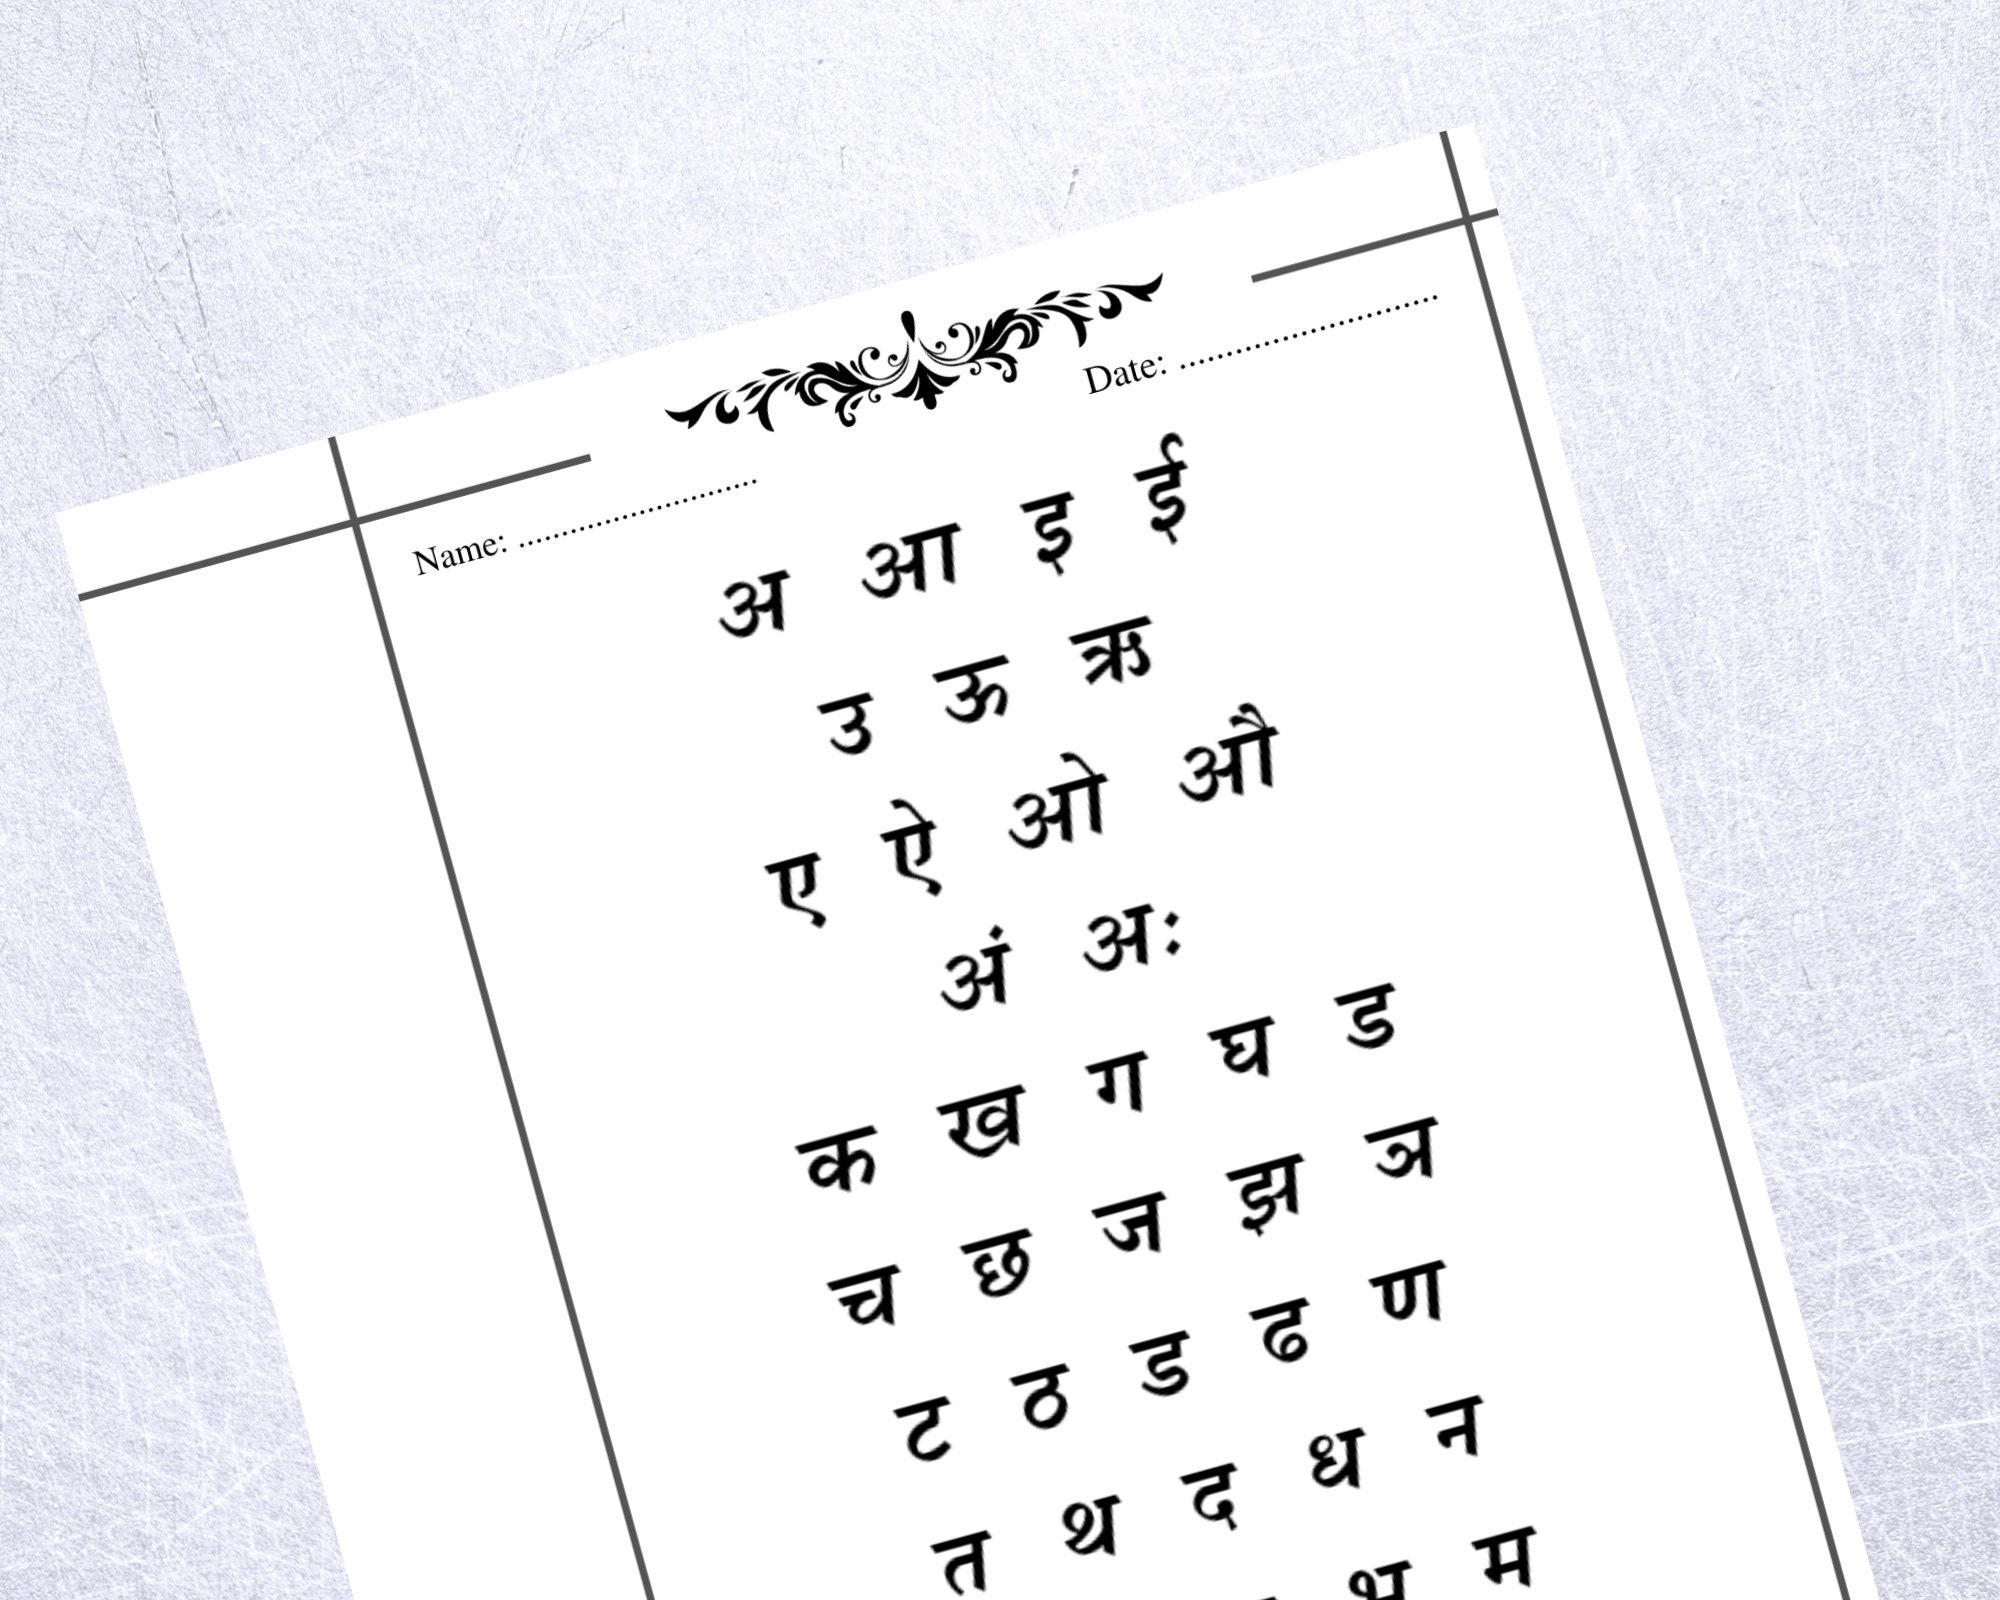 Name: ............................ Date: ............................
अ आ इ ई
उ ऊ ऋ
ए ऐ ओ औ
अं अः
क ख ग घ ड
च छ ज झ ञ
ट ठ ड ढ ण
त थ द ध न
भ म